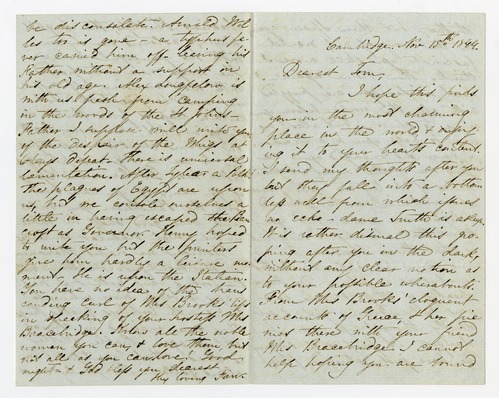 Cambridge, Nov 15th 1844.
Dearest Tom,
I hope this finds
you in the most charming
place in the world & enjoy
ing it to your heart's content.
I send my thoughts after you
but they fall into a bottom
less well from which issues
no echo – dame Truth is asleep.
It is rather dismal this go
ping after you in the dark
without any clear notion as
to your possible whereabouts.
From Mrs Brooks' eloquent
accounts of & her
there with your friend
Mrs Bracebridge I cannot
help hoping you are bound
be disconsolate. Amard Wel
les too is gone – a typhus fe
ver carried him off leaving his
Father without a support in
his old age. Alex Longfellow is
with us fresh from Camping
in the woods of the St John's.
Father I suppose will write you
of the despair of the Whigs at
Clays defeat. There is universal
lamentation. After Tyler a Polk
the plagues of Egypt are upon
us, but we console ourselves a
little in having escaped the Ban
croft as Governor. Henry hoped
to write you but the printers
give him hardly a leisure mo
ment. He is upon the Italian.
You have no idea of the trans
cending curl of Mrs Brooks' lips
in speaking of your hostess Mrs
Bracebridge. Know all the noble
women you can, & love them but
not all as you can love! Good
night & God bless you dearest
thy loving Fan.